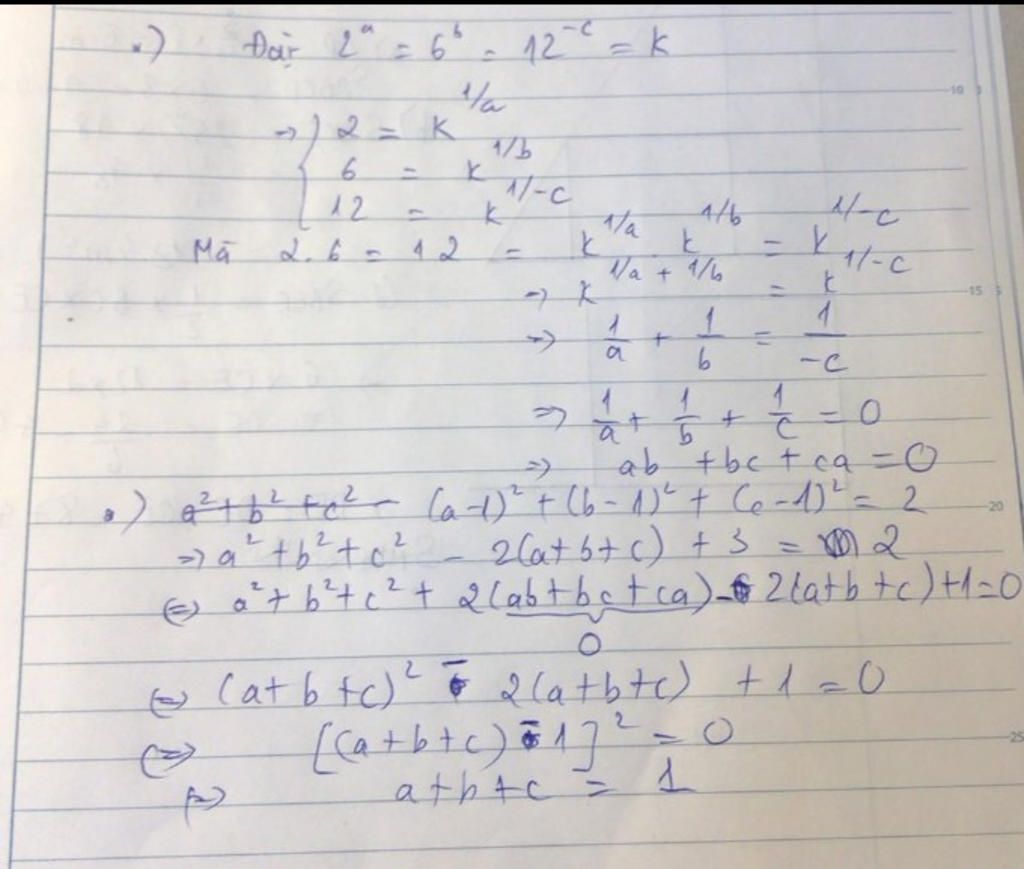 .) Đặt 2^a = 6^b = 12^-c = k
→ { 2 = k^1/a
6 = k^1/b
12 = k^1/-c
Mà 2.6 = 12 = k^1/a . k^1/b = k^1/-c
→ k^1/a + 1/b = k^1/-c
→ 1/a + 1/b = 1/-c
⇒ 1/a + 1/b + 1/c = 0
⇒ ab + bc + ca = 0
.) a² + b² + c² - (a-1)² + (b-1)² + (c-1)² = 2
⇒ a² + b² + c² - 2(a+b+c) + 3 = 2
⇔ a² + b² + c² + 2(ab+bc+ca) - 2(a+b+c) + 1 = 0
0
⇔ (a+b+c)² - 2(a+b+c) + 1 = 0
⇔ [(a+b+c) - 1]² = 0
⇒ a+b+c = 1
10
15
20
25